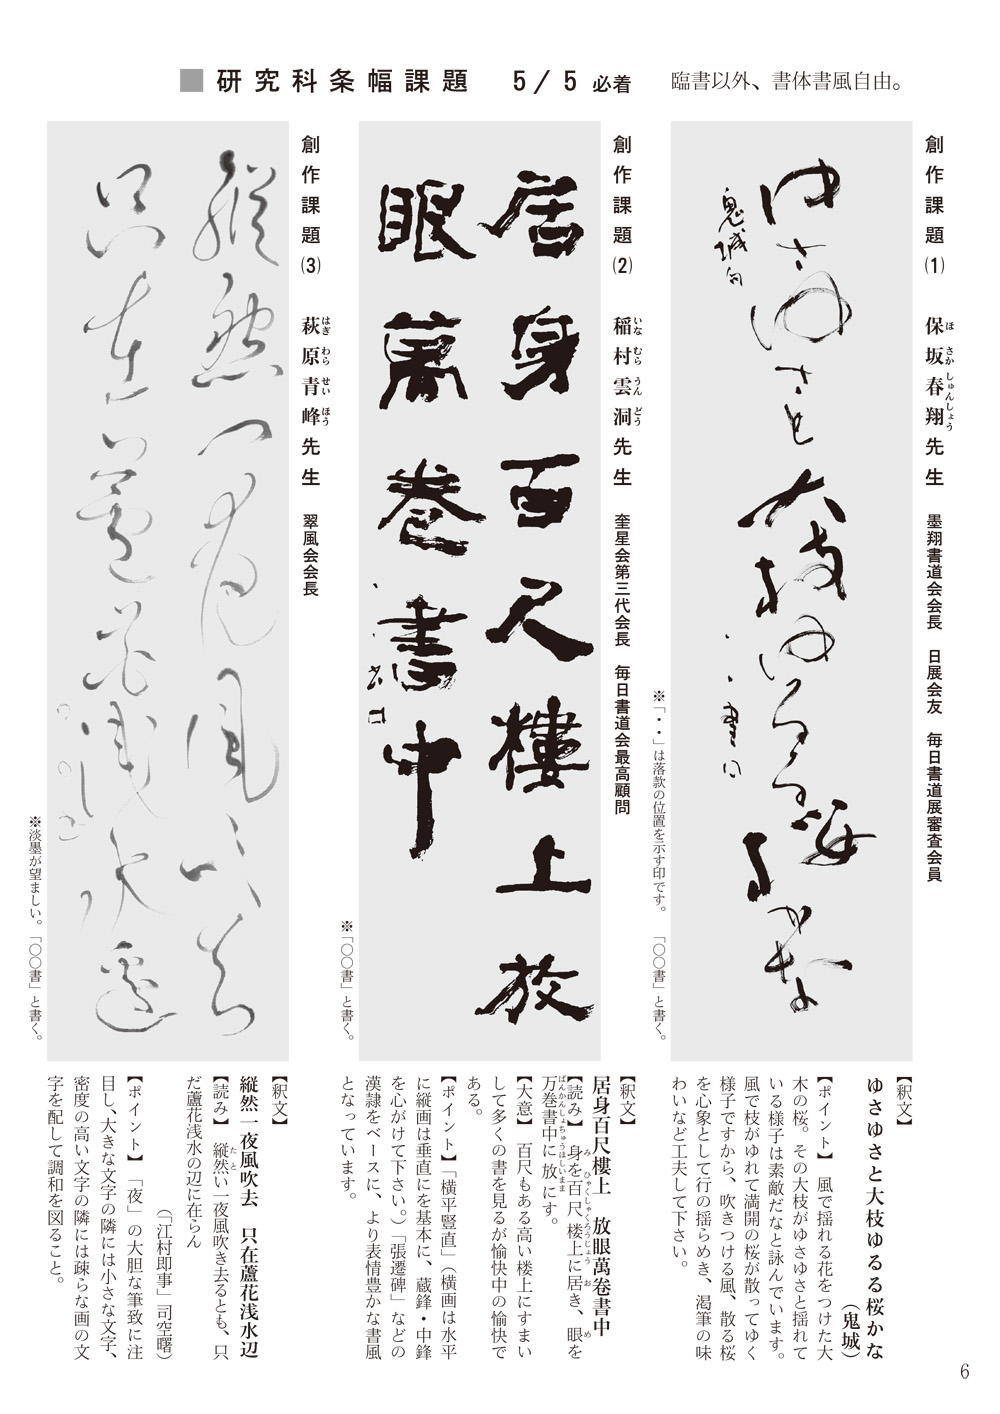 ■研究科条幅課題　5/5 必着　臨書以外、書体書風自由。
創作課題(1)　保坂春翔先生　墨翔書道会会長　日展会友　毎日書道展審査会員
ほさかしゅんしょう
ゆさゆさと大枝ゆるる桜かな
鬼城句
・・書回
※「・・」は落款の位置を示す印です。　「〇〇書」と書く。
【釈文】
ゆさゆさと大枝ゆるる桜かな
（鬼城）
【ポイント】　風で揺れる花をつけた大
木の桜。その大枝がゆさゆさと揺れて
いる様子は素敵だなと詠んでいます。
風で枝がゆれて満開の桜が散ってゆく
様子ですから、吹きつける風、散る桜
を心象として行の揺らめき、渇筆の味
わいなど工夫して下さい。
創作課題(2)　稲村雲洞先生　奎星会第三代会長　毎日書道会最高顧問
いなむらうんどう
居身百尺樓上放
眼萬卷書中
※「〇〇書」と書く。
【釈文】
居身百尺樓上　放眼萬卷書中
【読み】　身を百尺楼上に居き、眼を
み　ひゃくしゃくろうじょう　お　め
万巻書中に放にす。
ばんかんしょちゅう　ほしいまま
【大意】　百尺もある高い楼上にすまい
して多くの書を見るが愉快中の愉快で
ある。
【ポイント】「横平豎直」（横画は水平
に縦画は垂直にを基本に、蔵鋒・中鋒
を心がけて下さい。）「張遷碑」などの
漢隷をベースに、より表情豊かな書風
となっています。
創作課題(3)　萩原青峰先生　翠風会会長
はぎわらせいほう
縦然一夜風吹去
只在蘆花浅水辺
※淡墨が望ましい。「〇〇書」と書く。
【釈文】
縦然一夜風吹去　只在蘆花浅水辺
【読み】　縦然い一夜風吹き去るとも、只
たと
だ蘆花浅水の辺に在らん
（「江村即事」司空曙）
【ポイント】　「夜」の大胆な筆致に注
目し、大きな文字の隣には小さな文字、
密度の高い文字の隣には疎らな画の文
字を配して調和を図ること。
6